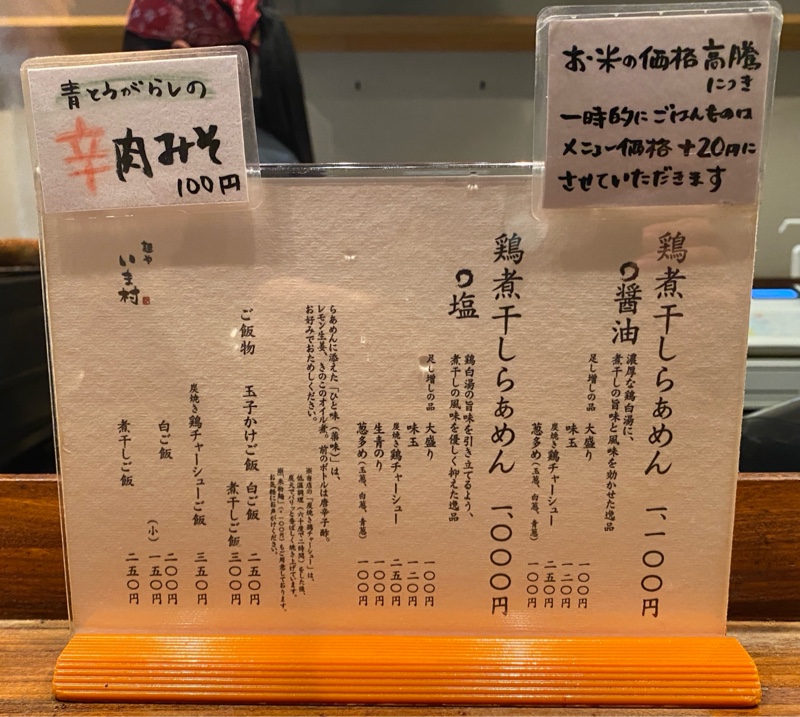 青とうがらしの
辛肉みそ
100円
お米の価格高騰
につき
一時的にごはんものは
メニュー価格+20円に
させていただきます
鶏煮干しらぁめん 一、一〇〇円
醤油
濃厚な鶏白湯に、
煮干しの旨味と風味を効かせた逸品
足し増しの品
大盛り 一〇〇円
味玉 一二〇円
炭焼き鶏チャーシュー 二五〇円
葱多め(玉葱、白葱、青葱) 一〇〇円
鶏煮干しらぁめん 一、〇〇〇円
塩
鶏白湯の旨味を引き立てるよう、
煮干しの風味を優しく抑えた逸品
足し増しの品
大盛り 一〇〇円
味玉 一二〇円
炭焼き鶏チャーシュー 二五〇円
生青のり 一〇〇円
葱多め(玉葱、白葱、青葱) 一〇〇円
らぁめんに添えた「ひと味(薬味)」は、
レモン生姜、きのこのオイル煮。前のボトルは唐辛子酢。
お好みでおためしください。
※当店の「炭焼き鶏チャーシュー」は、
低温調理(六十度で二時間)をした後、
炭火でパリッと香ばしく焼き上げています。
お気軽にお声がけください。
ご飯物
玉子かけご飯 白ご飯 二五〇円
煮干しご飯 三〇〇円
炭焼き鶏チャーシューご飯 三五〇円
白ご飯 二〇〇円
(小) 一五〇円
煮干しご飯 二五〇円
麺や
いま村